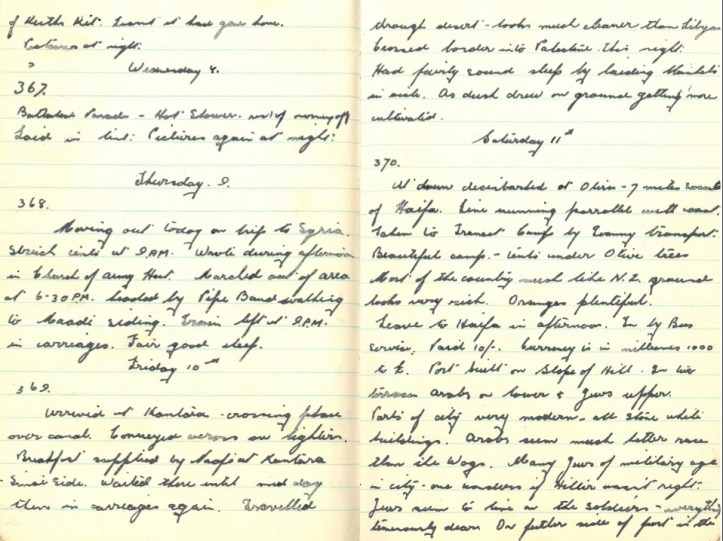 of Keiths Kit. Learnt it have gone home.
Pictures at night.
Wednesday 8.
367.
Battalion Parade - Hot Shower. rest of morning off
Laid in tent: Pictures again at night:
Thursday. 9.
368.
Moving out today on trip to Syria.
Struck tents at 2 P.M. Wrote during afternoon
in Church of army Hut. Marched out of area
at 6-30 P.M. headed by Pipe Band walking
to Maadi siding. Train left at 9 P.M.
in carriages. Fair good sleep.
Friday 10th
369.
Arrived at Kantara - crossing place
over canal. Conveyed across on lighters.
Breakfast supplied by Naafi at Kantara
Sinai Side. Waited there until mid day
then in carriages again. Travelled
through desert - looks much cleaner than Libyan
Crossed border into Palestine this night.
Had fairly sound sleep by laying blankets
in aisle. As dusk drew on ground getting more
cultivated.
Saturday 11th
370.
At dawn disembarked at - 7 miles
of Haifa. Line running parrallel with coast
Taken to Transit Camp by transport.
Beautiful camp. - tents under Olive trees
Most of the country much like N.Z. ground
looks very rich. Oranges plentiful.
Leave to Haifa in afternoon. In by Bus
Service, Paid 10/-. Currency is in millemes 1000
to £. Port built on Slope of Hill. In two
terraces Arabs on lower & Jews upper.
Parts of city very modern - all stone white
buildings. Arabs seem much better race
than the Wogs. Many Jews of military age
in city - one wonders if Hitler wasn't right.
Jews seem to live on the soldiers - everything
dear. On further side of port is the